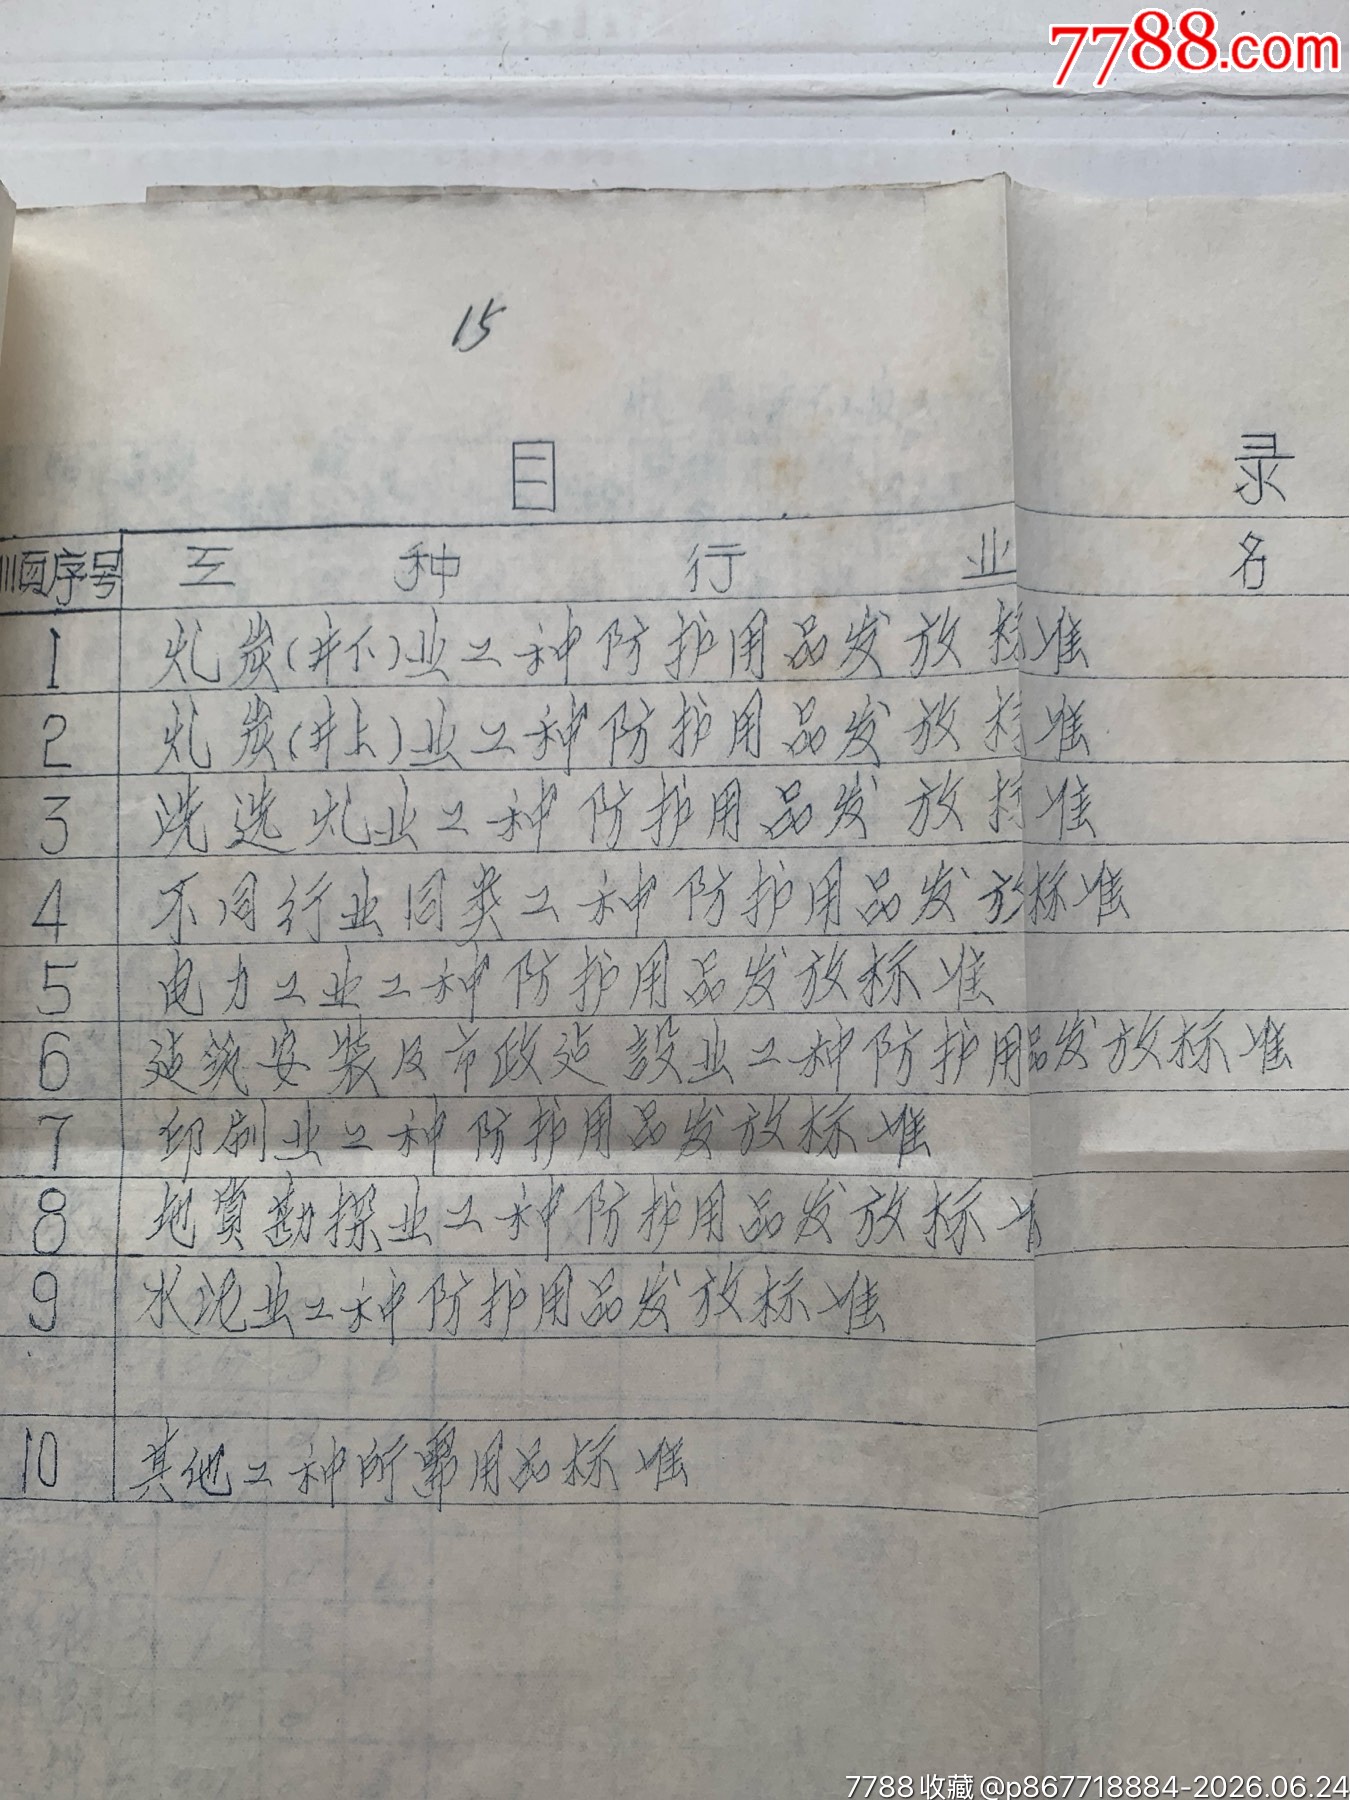 7788.com
15
目 录
顺序号 工 种 行 业 名
1 煤炭(井下)业工种防护用品发放标准
2 煤炭(井上)业工种防护用品发放标准
3 洗选煤业工种防护用品发放标准
4 不同行业同类工种防护用品发放标准
5 电力工业工种防护用品发放标准
6 建筑安装及市政建設业工种防护用品发放标准
7 印刷业工种防护用品发放标准
8 地质勘探业工种防护用品发放标准
9 水泥业工种防护用品发放标准
10 其他工种所需用品标准
7788收藏@p867718884-2026.06.24